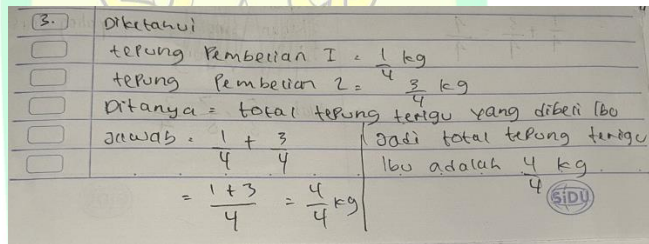 3. Diketahui
tepung Pembelian I = 1/4 kg
tepung Pembelian 2 = 3/4 kg
Ditanya = total tepung terigu yang dibeli Ibo
Jawab = 1/4 + 3/4
= 1+3/4 = 4/4 kg
Jadi total tepung terigu
Ibu adalah 4/4 kg
SiDU